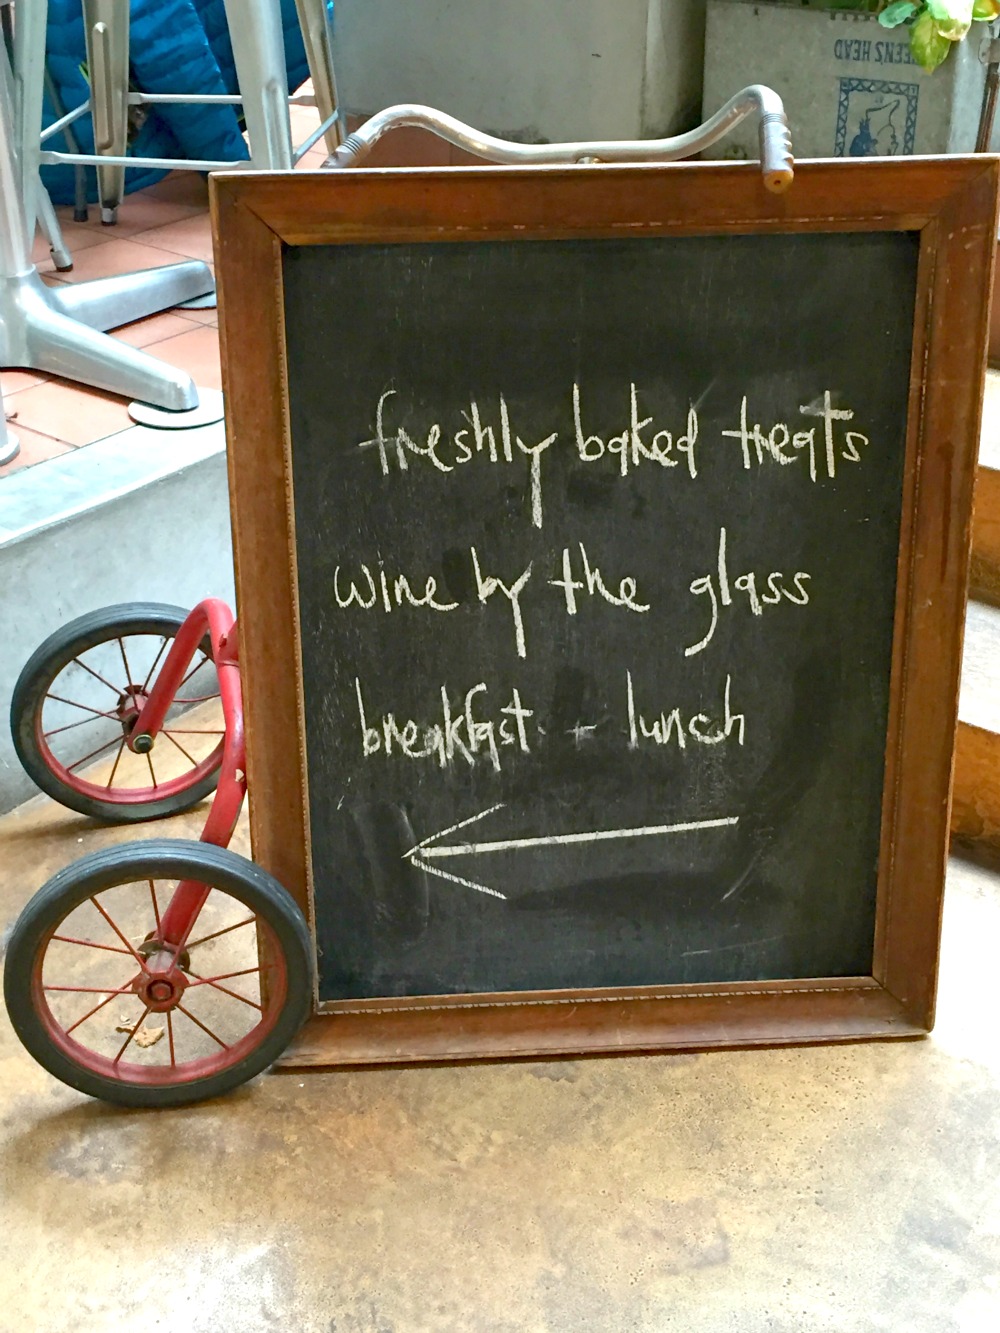 EEN'S HEAD
freshly baked treats
wine by the glass
breakfast + lunch